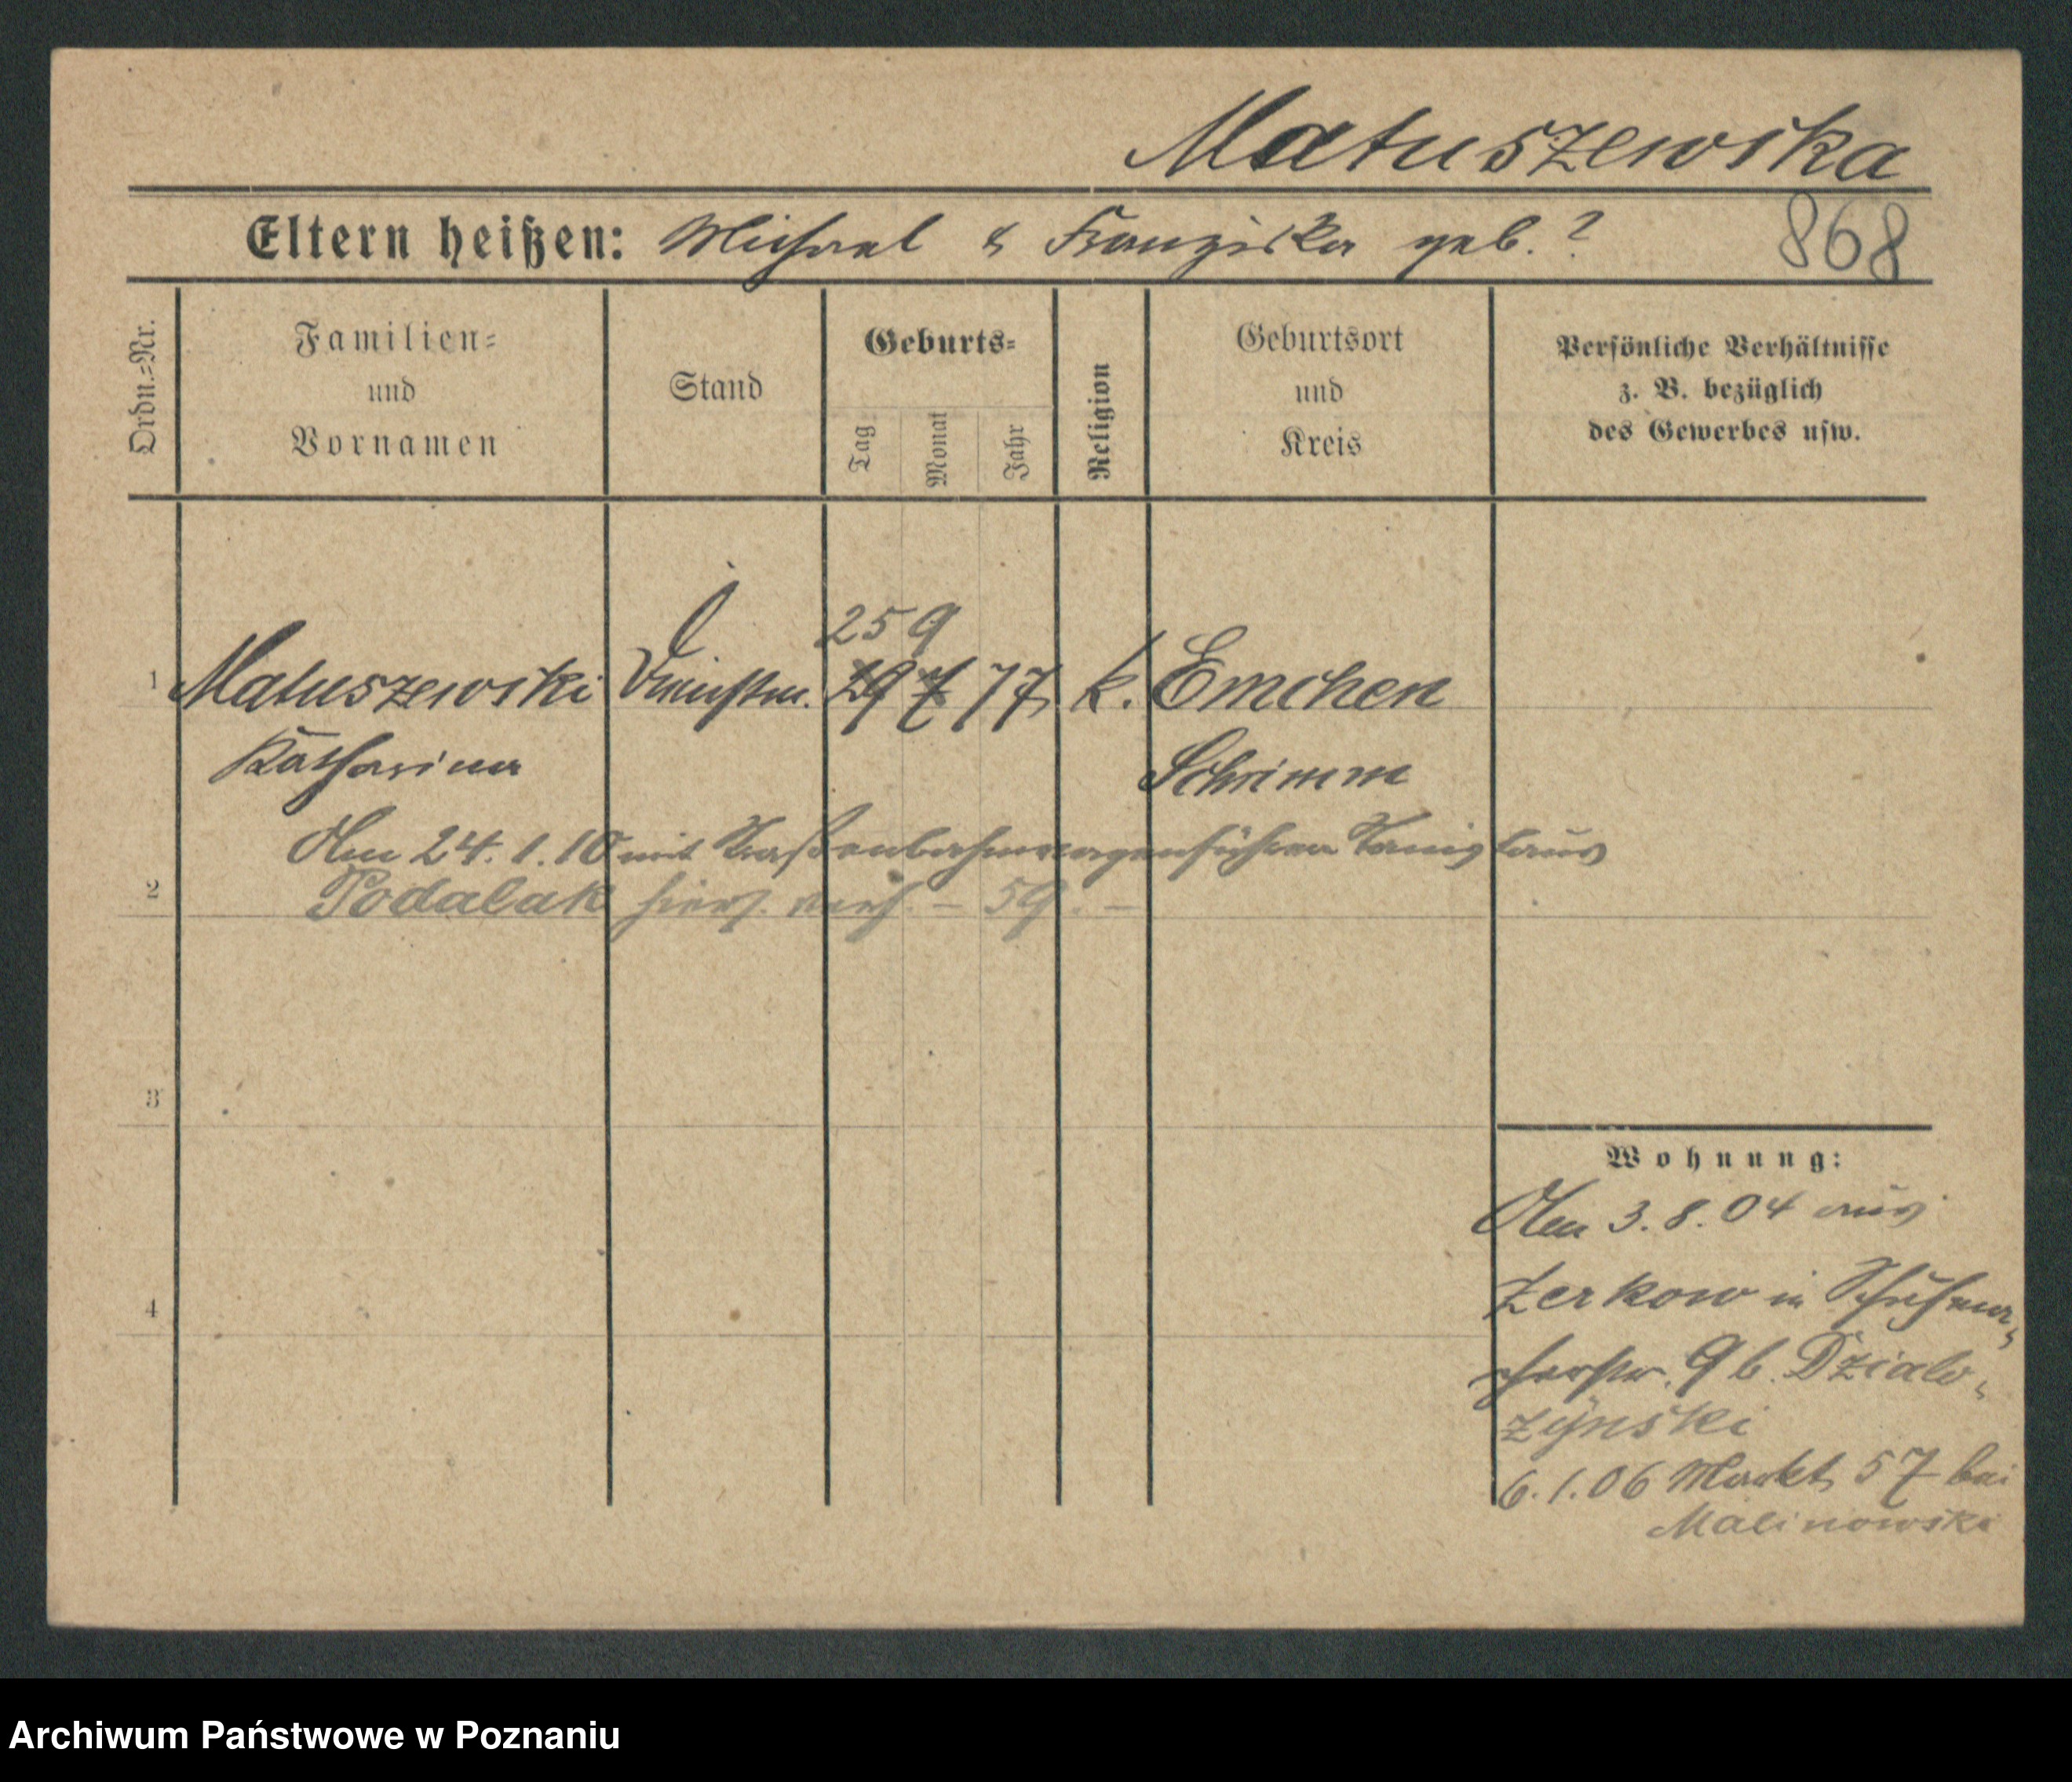 Matuszewska
Eltern heißen: Michael & Franziska geb. ?
868
Ordn.=Nr.
Familien=
und
Vornamen
Stand
Geburts=
Tag
Monat
Jahr
Religion
Geburtsort
und
Kreis
Persönliche Verhältnisse
z. B. bezüglich
des Gewerbes usw.
25 9
1 Matuszewski 29 7 77 k. Emchen
Katharina Schrimm
Am 24. 1. 10 mit Straßenbahnwagenführer
2 Podalak hiers. verh. – 59. –
3
4
Wohnung:
Am 3. 8. 04 aus
Zerkow in
9 b. Dzialo-
zynski
6. 1. 06 Markt 57 bei
Malinowski
Archiwum Państwowe w Poznaniu